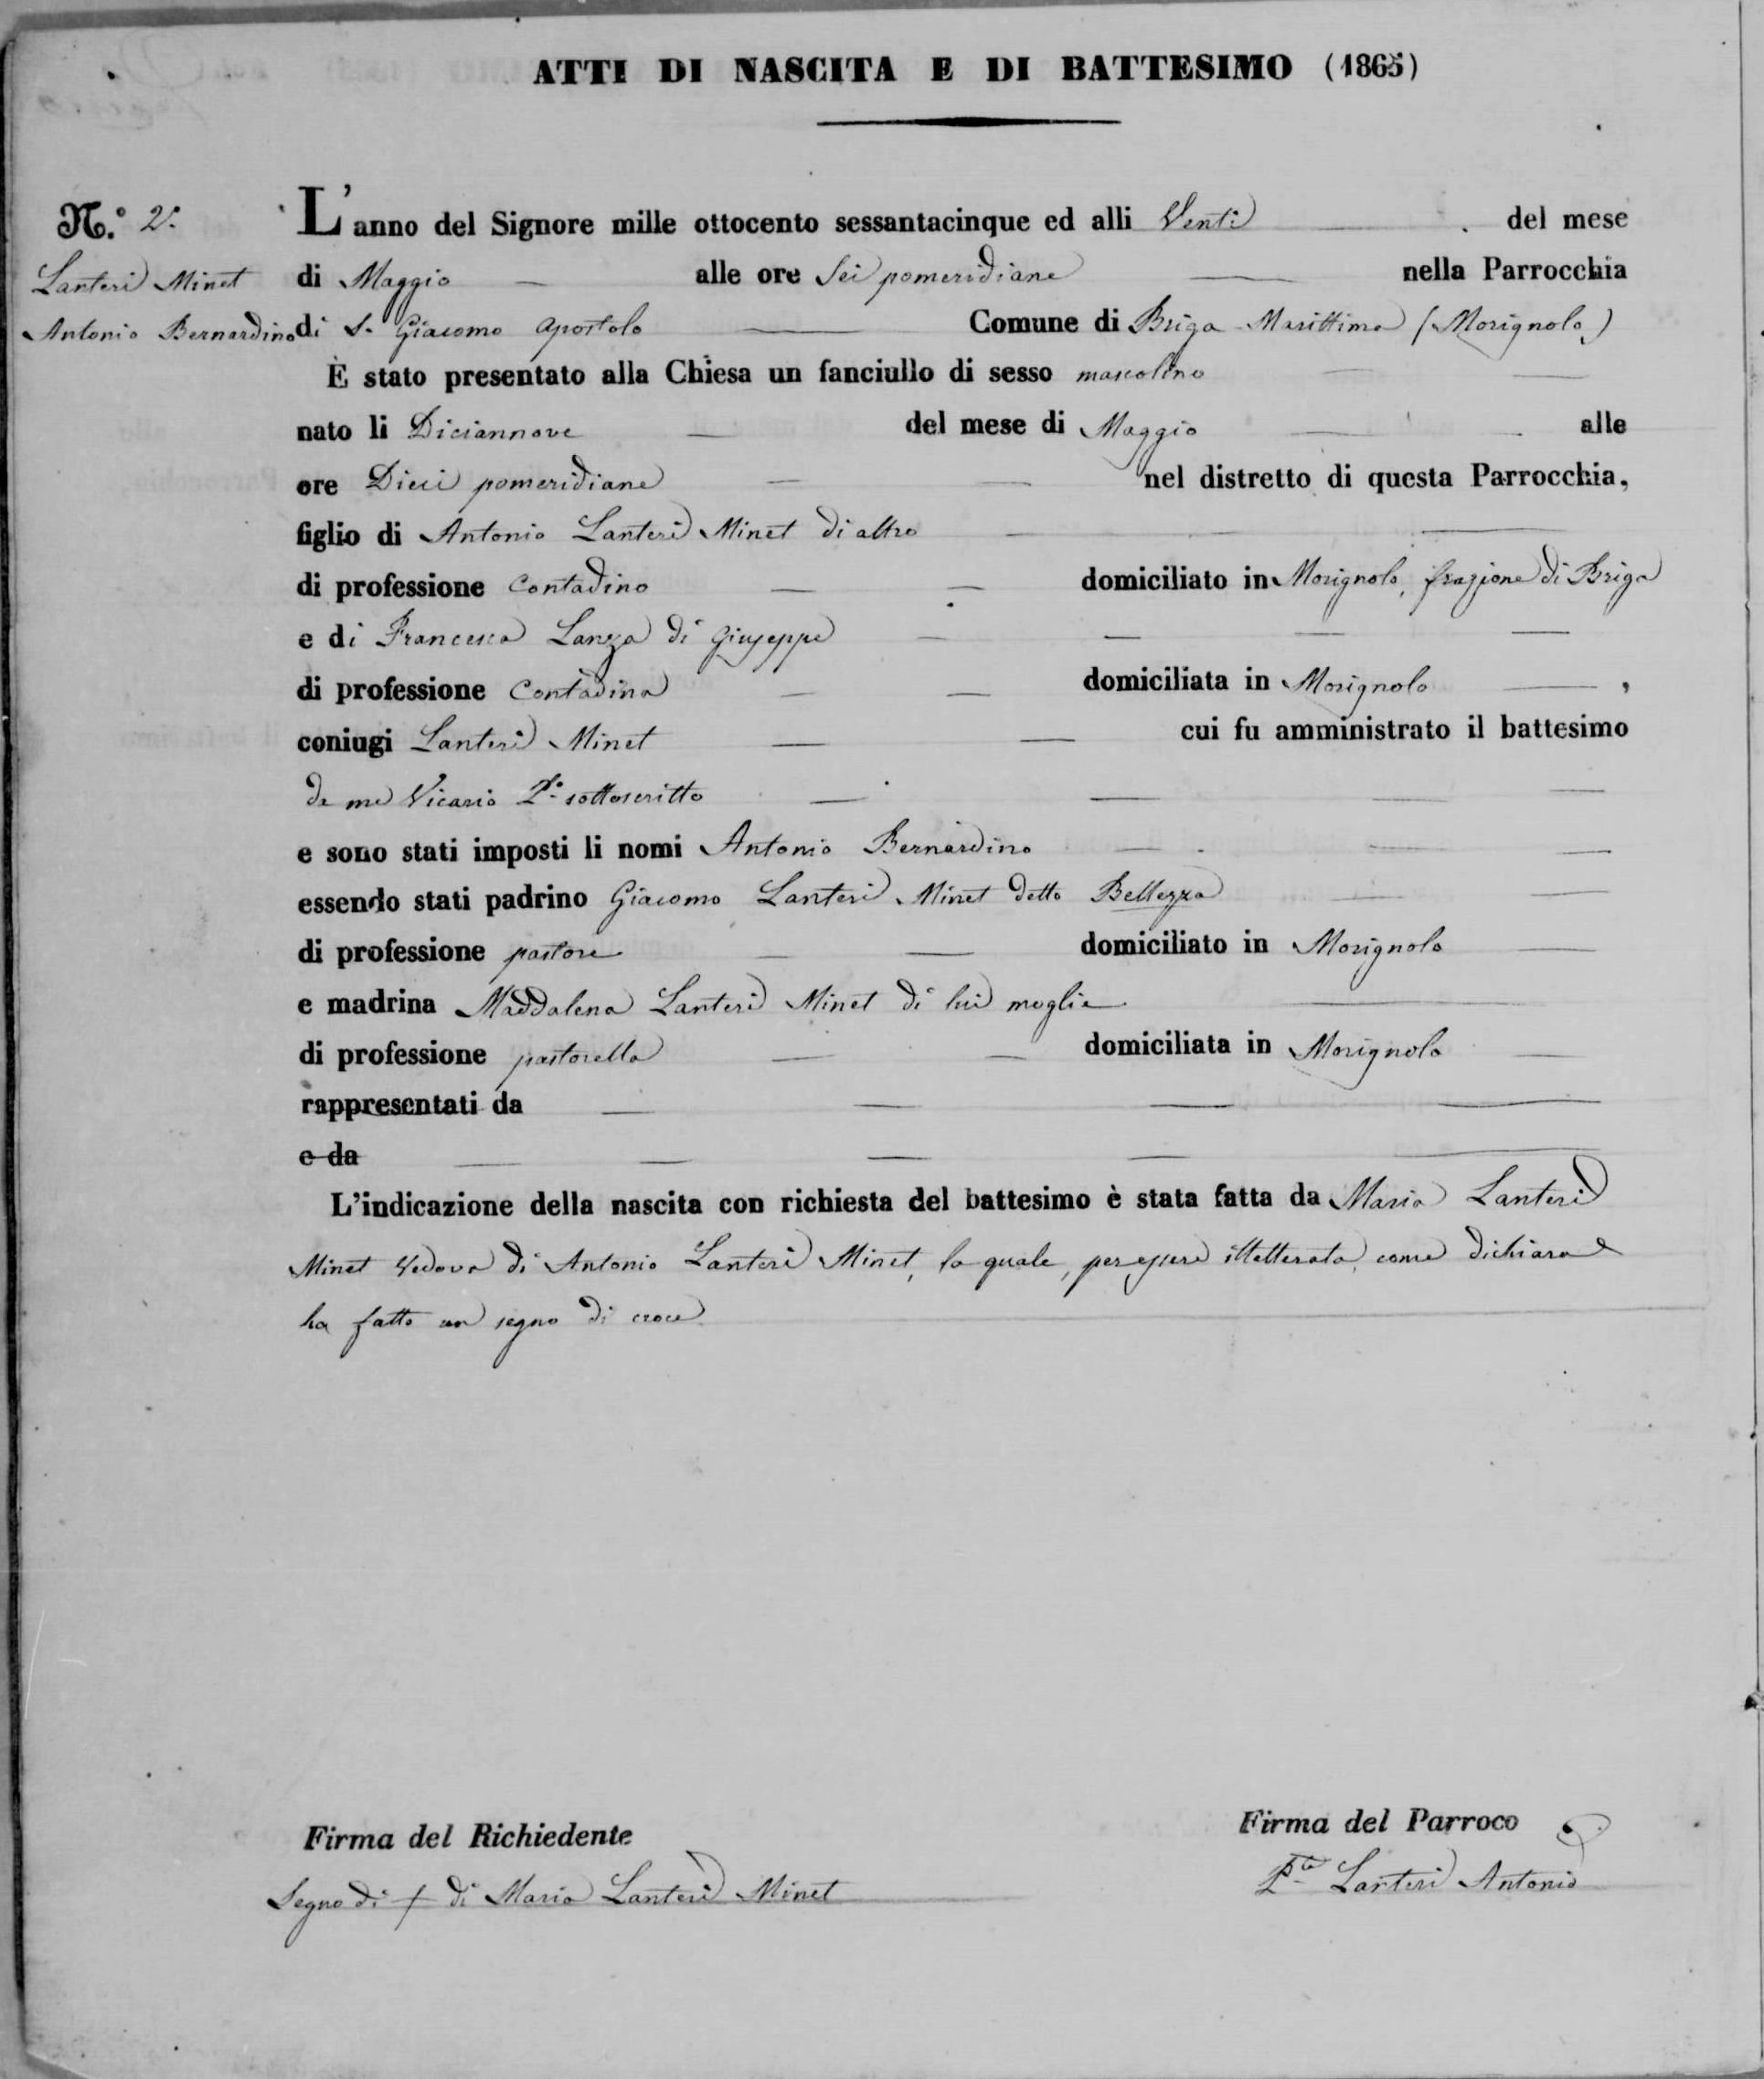 ATTI DI NASCITA E DI BATTESIMO (1865)
N.° 2.
Lanteri Minet
Antonio Bernardino
L'anno del Signore mille ottocento sessantacinque ed alli Venti del mese
di Maggio alle ore Sei pomeridiane nella Parrocchia
di S. Giacomo Apostolo Comune di Briga Marittima (Morignolo)
È stato presentato alla Chiesa un fanciullo di sesso mascolino
nato li Diciannove del mese di Maggio alle
ore Dieci pomeridiane nel distretto di questa Parrocchia,
figlio di Antonio Lanteri Minet di altro
di professione Contadino domiciliato in Morignolo, frazione di Briga
e di Francesca Lanza di Giuseppe
di professione Contadina domiciliata in Morignolo,
coniugi Lanteri Minet cui fu amministrato il battesimo
da me Vicario P.° sottoscritto
e sono stati imposti li nomi Antonio Bernardino
essendo stati padrino Giacomo Lanteri Minet detto Bellezza
di professione pastore domiciliato in Morignolo
e madrina Maddalena Lanteri Minet di lui moglie
di professione pastorella domiciliata in Morignolo
rappresentati da
e da
L'indicazione della nascita con richiesta del battesimo è stata fatta da Maria Lanteri
Minet Vedova di Antonio Lanteri Minet, la quale, per essere illetterata, come dichiara
ha fatto un segno di croce
Firma del Richiedente
Firma del Parroco
Segno di + di Maria Lanteri Minet
P.te Lanteri Antonio